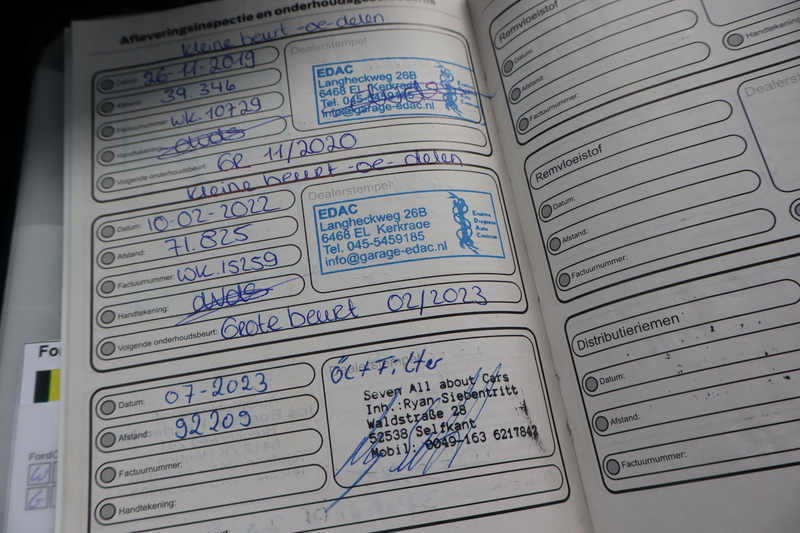 Afleveringsinspectie en onderhoudsgeschiedenis
Kleine beurt -oe-delen
Datum: 26-11-2019
Afstand: 39.346
Factuurnummer: WK.10729
Handtekening:
Volgende onderhoudsbeurt: GR 11/2020
Dealerstempel
EDAC
Langheckweg 26B
6468 EL Kerkrade
Tel. 045-5459185
info@garage-edac.nl
Kleine beurt -oe-delen
Datum: 10-02-2022
Afstand: 71.825
Factuurnummer: WK.15259
Handtekening:
Volgende onderhoudsbeurt: Grote beurt 02/2023
Dealerstempel
EDAC
Langheckweg 26B
6468 EL Kerkrade
Tel. 045-5459185
info@garage-edac.nl
Elektro
Diagnose
Auto
Centrum
Datum: 07-2023
Afstand: 92209
Factuurnummer:
Handtekening:
Dealerstempel
Öl + Filter
Seven All about Cars
Inh.:Ryan Siebentritt
Waldstraße 28
52538 Selfkant
Mobil: 0049-163 6217842
Remvloeistof
Datum:
Afstand:
Factuurnummer:
Handtekening:
Remvloeistof
Datum:
Afstand:
Factuurnummer:
Distributieriemen
Datum:
Afstand:
Factuurnummer: